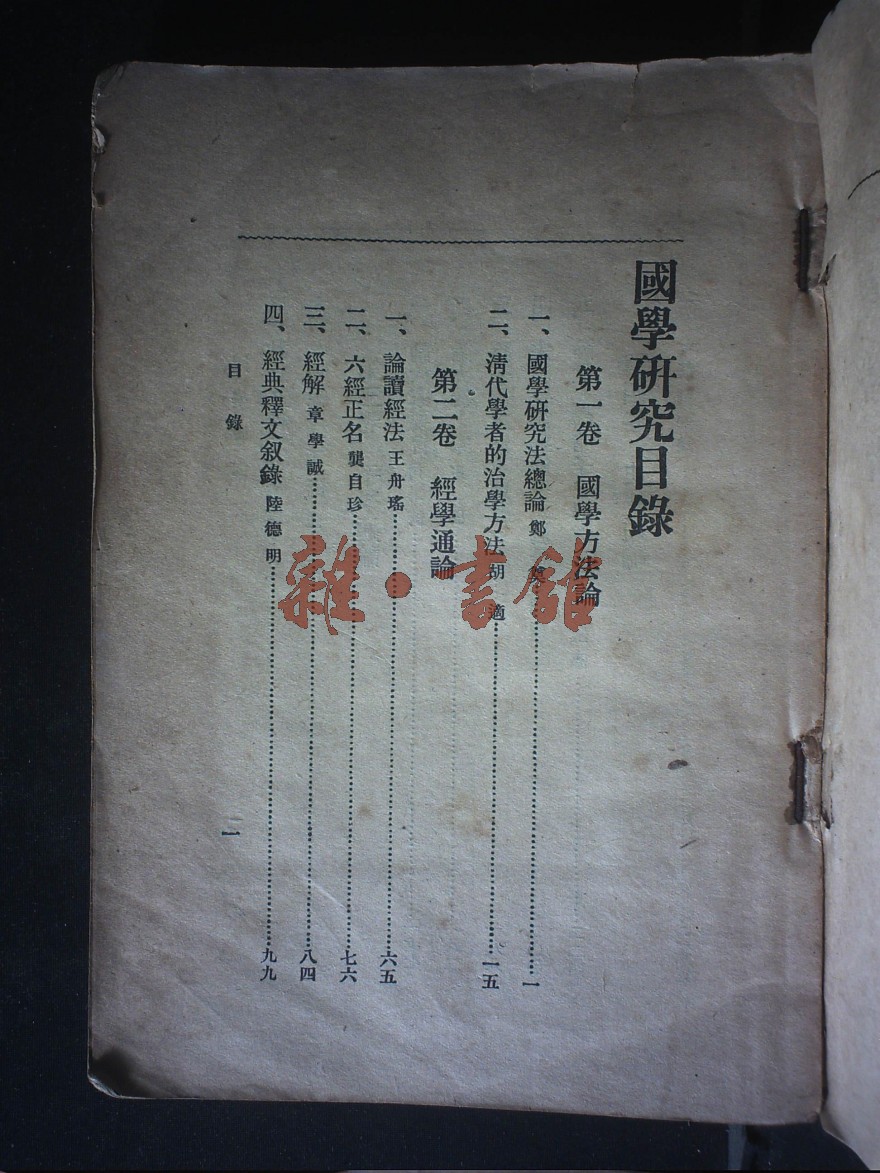 國學研究目錄
第一卷 國學方法論
一、國學研究法總論 鄭 ……一
二、清代學者的治學方法 胡適……一五
第二卷 經學通論
一、論讀經法 王舟瑤……六五
二、六經正名 龔自珍……七六
三、經解 章學誠……八四
四、經典釋文叙錄 陸德明……九九
目錄
一
雜·書館